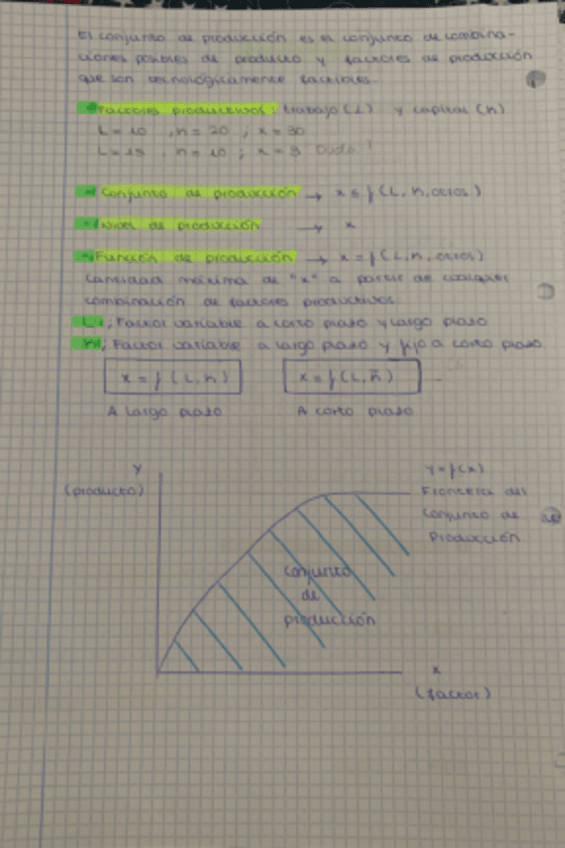 El conjunto de producción es el conjunto de combina-
ciones posibles de producto y factores de producción
que son tecnológicamente factibles.
Factores productivos: trabajo (L) y capital (K)
L = 10 , K = 20 ; x = 30
L = 15 , K = 10 ; x =
Conjunto de producción → x ≤ f (L, K, otros)
Nivel de producción → x
Función de producción → x = f (L, K, otros)
Cantidad máxima de "x" a partir de cualquier
combinación de factores productivos.
L; Factor variable a corto plazo y largo plazo
K; Factor variable a largo plazo y fijo a corto plazo.
x = f (L, K) x = f (L, K̄)
A largo plazo A corto plazo
Y
(producto)
Y = f(x)
Frontera del
Conjunto de
Producción
conjunto
de
producción
x
(factor)